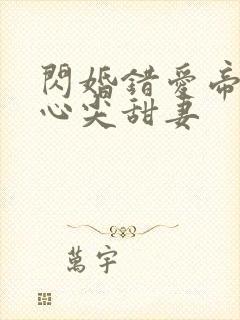 閃婚錯愛帝
心尖甜妻
萬宇